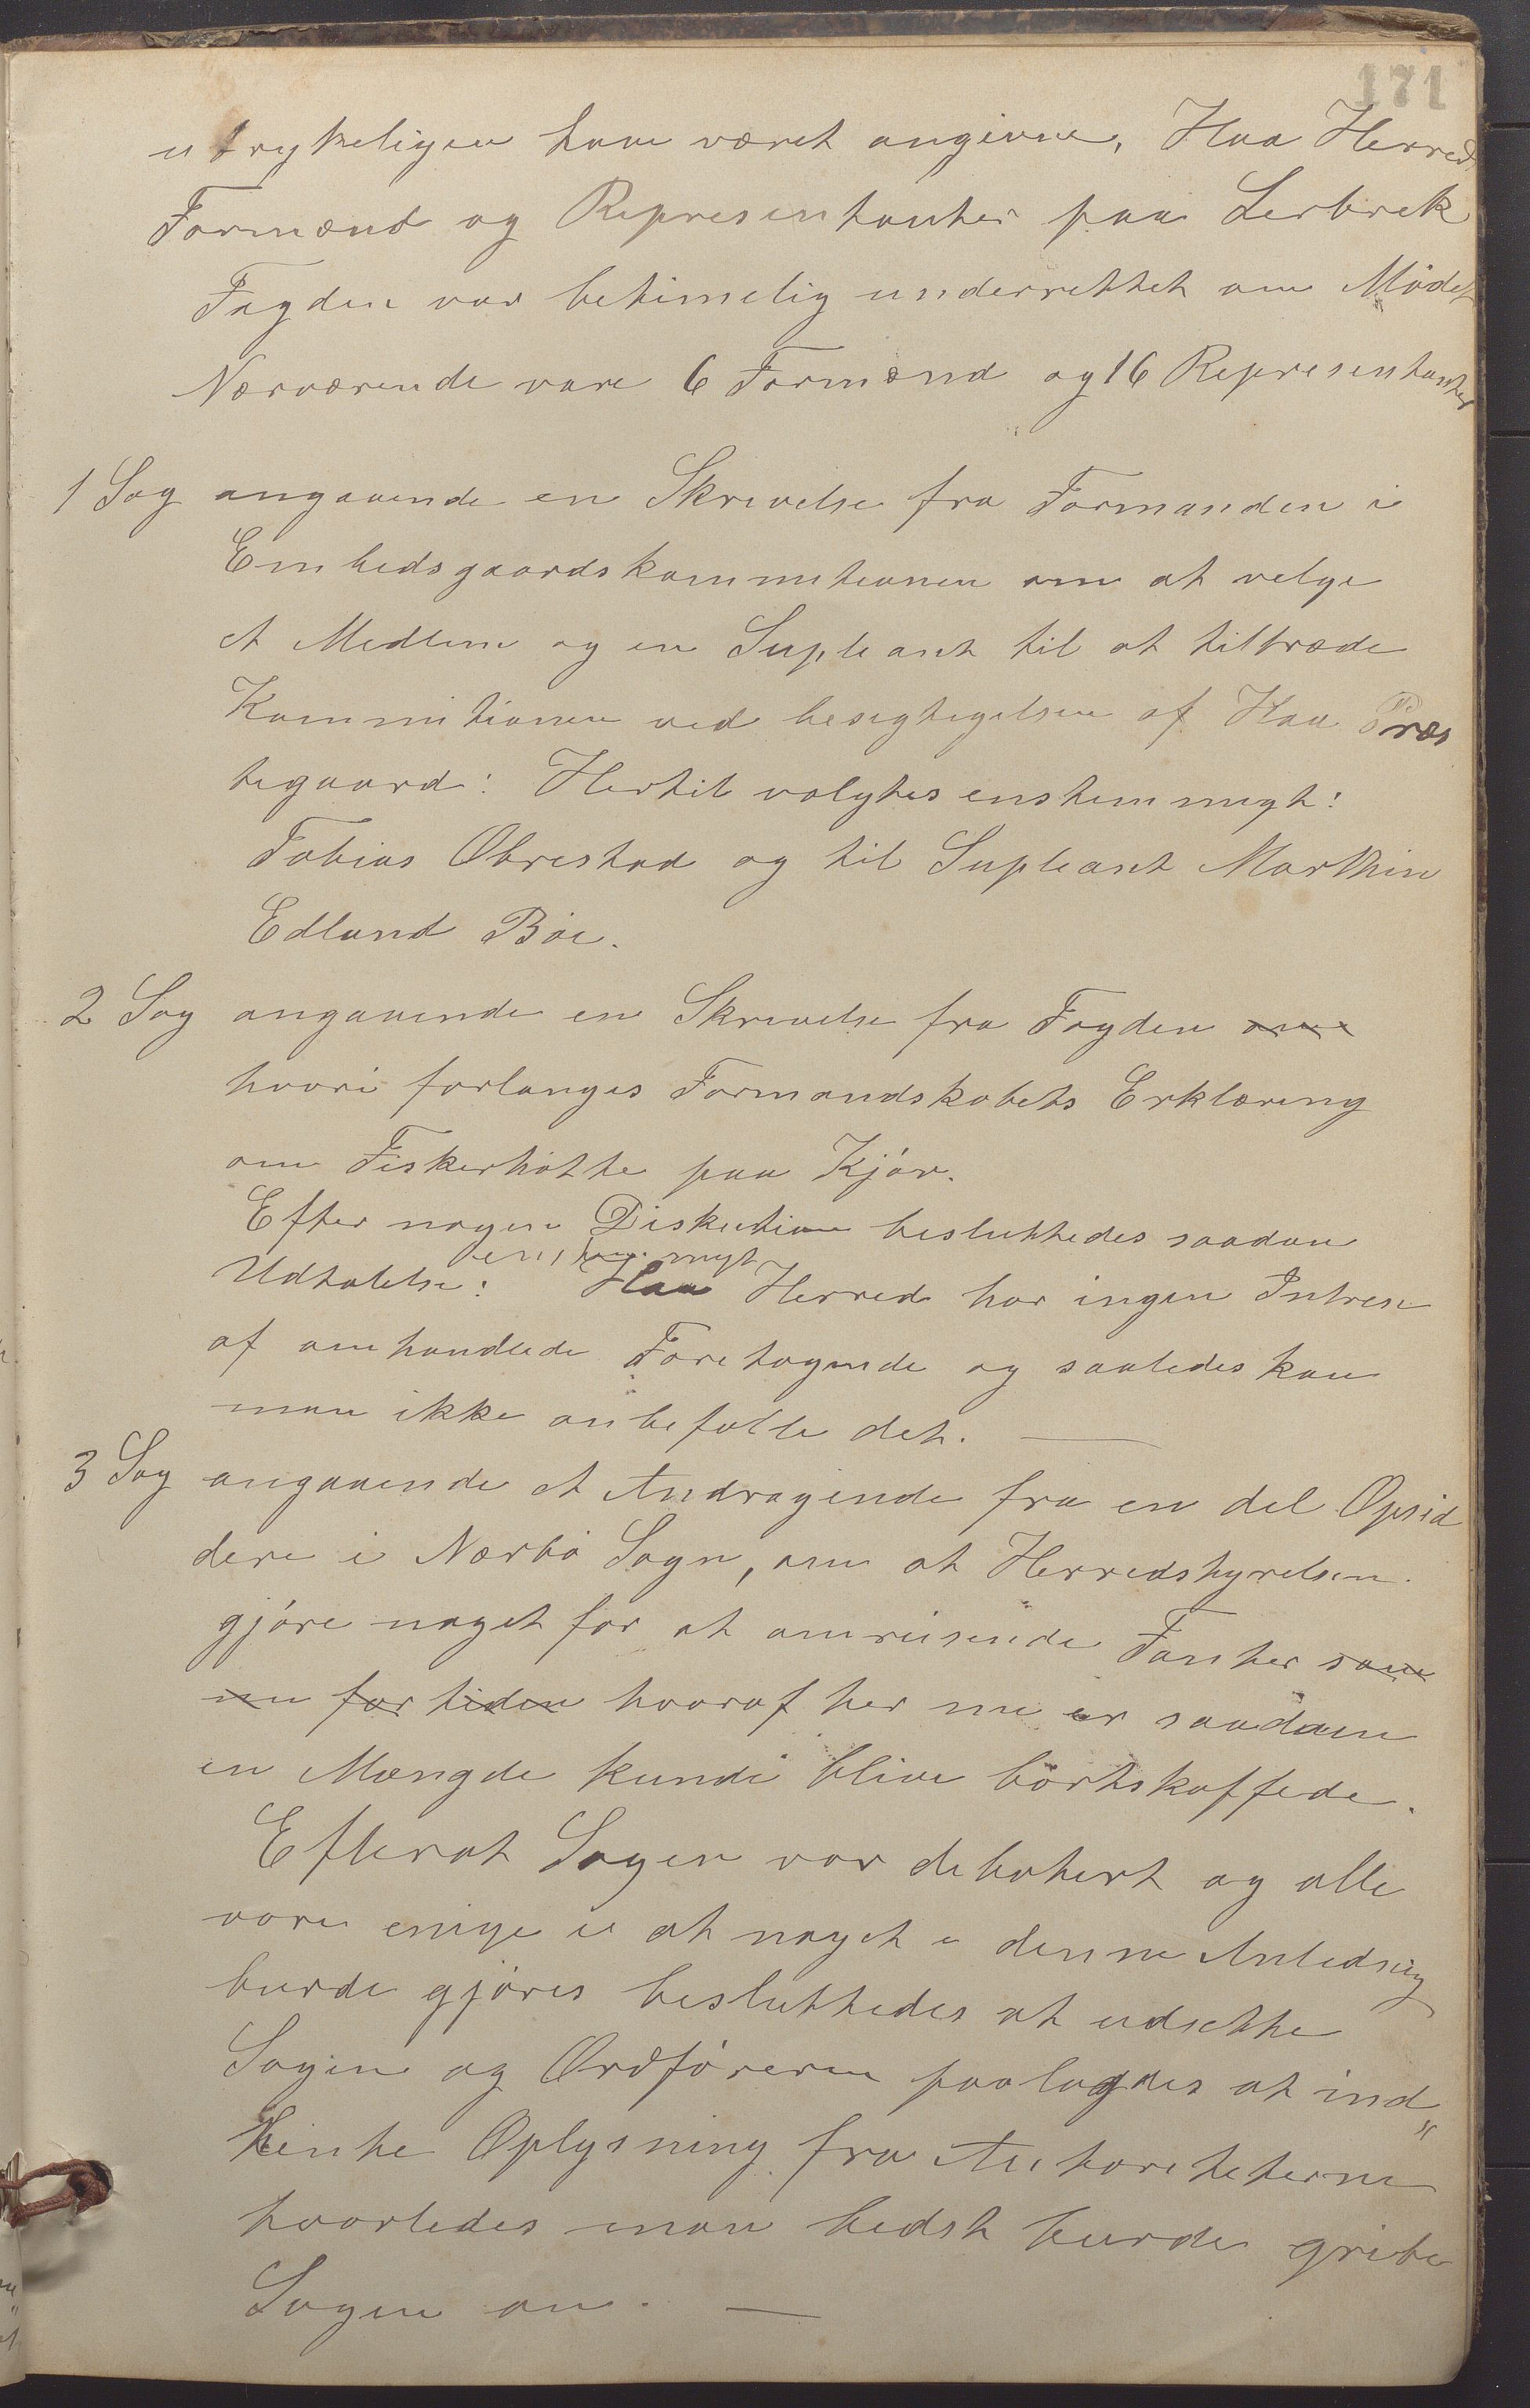 171
utrykeligen have været angivne, Haa Herreds
Formænd og Representanter paa Lerbrek
Fogden var betimelig underrettet om Mödet
Nærværende vare 6 Formænd og 16 Representanter
1 Sag angaaende en Skrivelse fra Formanden i
Embedsgaardskommitionen om at velge
et Medlem og en Supleant til at tiltræde
Kommitionen ved besigtigelsen af Haa Præs
tegaard: Hertil valgtes enstemmigt:
Tobias Obrestad og til Supleant Marthin
Edland Böe.
2 Sag angaaende en Skrivelse fra Fogden om
hvori forlanges Formandskabets Erklæring
om Fiskerhötte paa Kjör.
Efter nogen Diskution besluttedes saadan
enstemmigt
Udtalelse: Haa Herred har ingen Intrese
af omhandlede Foretagende og saaledes kan
man ikke anbefalle det.
3 Sag angaaende et Andragende fra en del Opsid
dere i Nærbö Sogn, om at Herredstyrelsen
gjöre noget for at omreisende Fanter som
nu for tiden hvoraf her nu er saadan
en Mængde kunde blive börtskaffede.
Efterat Sagen var debatert og alle
vare enige i at noget i denne Anledning
burde gjöres besluttedes at udsette
Sagen og Ordföreren paalagdes at ind„
hente Oplysning fra Autoriteterne
hvorledes man bedst burde gribe
Sagen an.